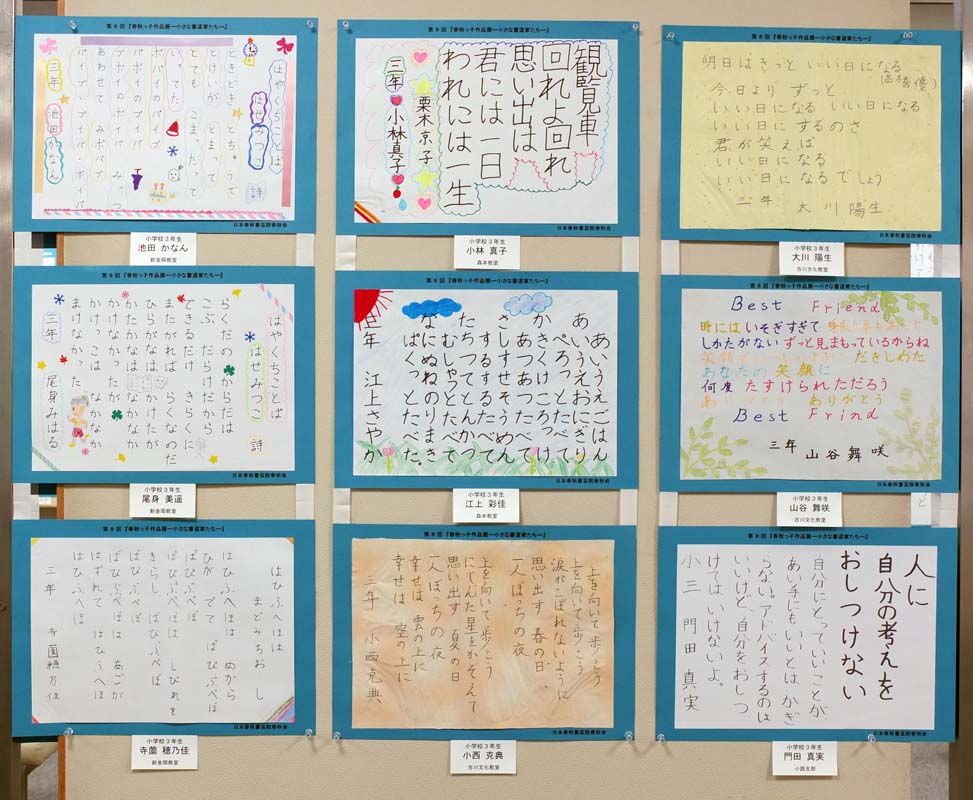 第8回『春秋っ子作品展―小さな書道家たち―』
はやくちことば
はせみつこ
詩
ときどき とちゅうで
とけいが とまって
とても こまった
って
パイプ
三年 池田かなん
小学校3年生
池田 かなん
新金岡教室
第8回『春秋っ子作品展―小さな書道家たち―』
観覧車
回れよ回れ
思い出は
君には一日
われには一生
栗木京子
三年 小林真子
日本春秋書芸院春秋会
小学校3年生
小林 真子
森本教室
第8回『春秋っ子作品展―小さな書道家たち―』
明日はきっと いい日になる
(高橋優)
今日より ずっと
いい日になる いい日になる
いい日に するのさ
君が笑えば
いい日に なる
いい日に なるでしょう
三年 大川陽生
日本春秋書芸院春秋会
小学校3年生
大川 陽生
古川文化教室
第8回『春秋っ子作品展―小さな書道家たち―』
はやくちことば
はせみつこ
詩
らくだの からだは
こぶ だらけだから
できるだけ きらくに
またがれば らくなのだ
ひらがな かけたが
かたかなは かけたか
かけなかったか
かけっこは なかなか
まけなかった
三年 尾身みはる
日本春秋書芸院春秋会
小学校3年生
尾身 美遥
新金岡教室
第8回『春秋っ子作品展―小さな書道家たち―』
あいうえごはん
あいうえおにぎり
ぺろっとたべて
かきくけころっけ
あつあつたべて
さしすせそうめん
するするたべて
たちつてとんかつ
むしゃっとたべて
なにぬねのりまき
ぱくっとたべた。
三年 江上さやか
日本春秋書芸院春秋会
小学校3年生
江上 彩佳
森本教室
第8回『春秋っ子作品展―小さな書道家たち―』
Best Friend
時には いそぎすぎて
しかたがない ずっと見まもっているからね
だきしめた
あなたの 笑顔に
何度 たすけられただろう
ありがとう ありがとう
Best Frind
三年 山谷舞咲
日本春秋書芸院春秋会
小学校3年生
山谷 舞咲
古川文化教室
第8回『春秋っ子作品展―小さな書道家たち―』
はひふへほは
まどみちお し
はひふへほは めから
ひが でて ぱぴぷぺぽ
ばびぶべぼは しびれを
きらし ばびぶべぼ
ぱぴぷぺぽは あごが
はずれて はひふへほ
はひふへほ
三年 寺薗穂乃佳
日本春秋書芸院春秋会
小学校3年生
寺薗 穂乃佳
新金岡教室
第8回『春秋っ子作品展―小さな書道家たち―』
上を向いて歩こう
上を向いて歩こう
涙がこぼれないように
思い出す 春の日
一人ぼっちの夜
上を向いて歩こう
にじんだ星をかぞえて
思い出す 夏の日
一人ぼっちの夜
幸せは 雲の上に
幸せは 空の上に
三年 小西克典
日本春秋書芸院春秋会
小学校3年生
小西 克典
古川文化教室
第8回『春秋っ子作品展―小さな書道家たち―』
人に
自分の考えを
おしつけない
自分にとっていいことが、
あい手にもいいとは、かぎ
らない。アドバイスするのは
いいけど、自分をおしつ
けては、いけないよ。
小三 門田真実
日本春秋書芸院春秋会
小学校3年生
門田 真実
小路支部